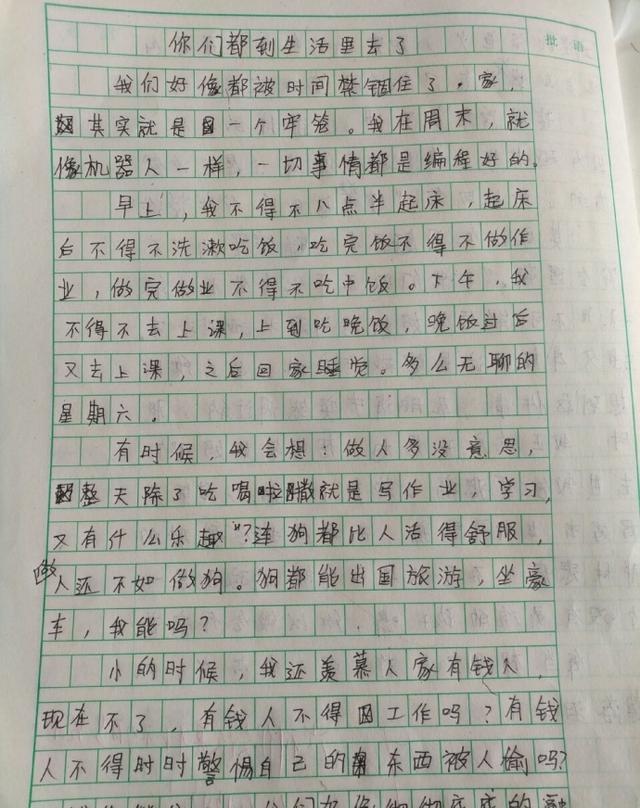 批语
你们都到生活里去了
我们好像都被时间禁锢住了。家,
其实就是一个牢笼。我在周末,就
像机器人一样,一切事情都是编程好的。
早上,我不得不八点半起床,起床
后不得不洗漱吃饭,吃完饭不得不做作
业,做完做业不得不吃中饭。下午,我
不得不去上课,上到吃晚饭,晚饭过后
又去上课,之后回家睡觉。多么无聊的
星期六。
有时候,我会想:做人多没意思,
整天除了吃喝啦撒就是写作业,学习,
又有什么乐趣?连狗都比人活得舒服,
做人还不如做狗。狗都能出国旅游,坐豪
车,我能吗?
小的时候,我还羡慕人家有钱人,
现在不了,有钱人不得工作吗?有钱
人不得时时警惕自己的东西被人偷吗?